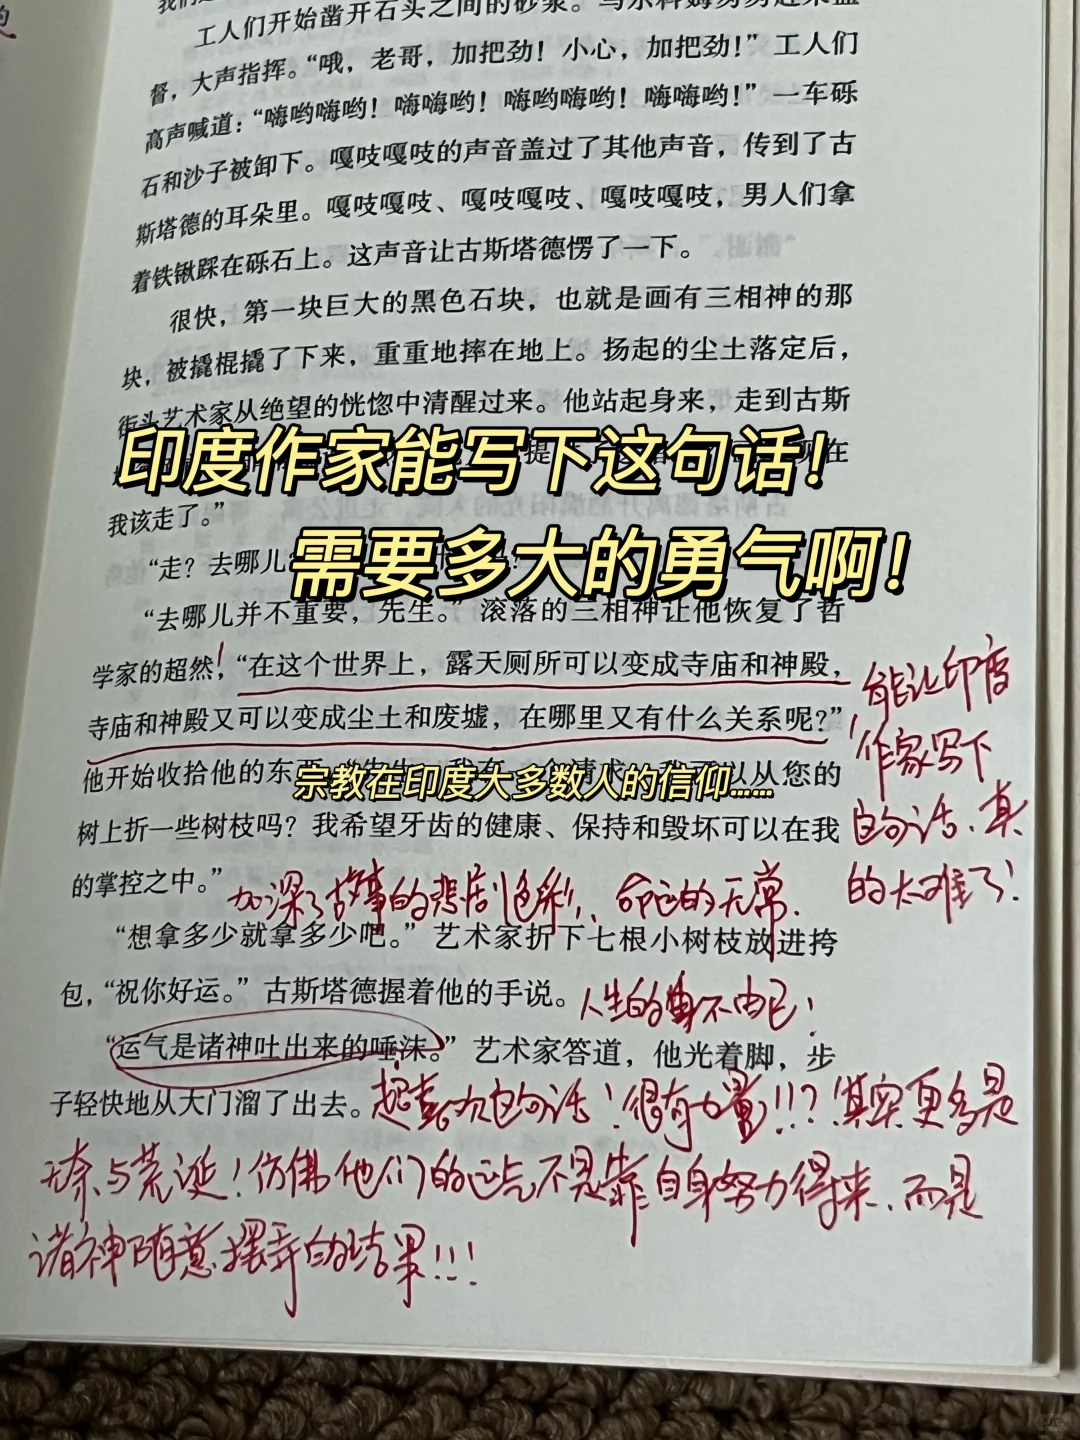 工人们开始凿开石头之间的砂浆。
督，大声指挥。“哦，老哥，加把劲！小心，加把劲！”工人们
高声喊道：“嗨哟嗨哟！嗨嗨哟！嗨哟嗨哟！嗨嗨哟！”一车砾
石和沙子被卸下。嘎吱嘎吱的声音盖过了其他声音，传到了古
斯塔德的耳朵里。嘎吱嘎吱、嘎吱嘎吱、嘎吱嘎吱，男人们拿
着铁锹踩在砾石上。这声音让古斯塔德愣了一下。
很快，第一块巨大的黑色石块，也就是画有三相神的那
块，被撬棍撬了下来，重重地摔在地上。扬起的尘土落定后，
街头艺术家从绝望的恍惚中清醒过来。他站起身来，走到古斯
印度作家能写下这句话！
在
我该走了。”
需要多大的勇气啊！
“走？去哪儿
“去哪儿并不重要，先生。”滚落的三相神让他恢复了哲
学家的超然，“在这个世界上，露天厕所可以变成寺庙和神殿，
寺庙和神殿又可以变成尘土和废墟，在哪里又有什么关系呢？”
能让印度
作家写下
这句话、真
的太难了！
他开始收拾他的东西
从您的
宗教在印度大多数人的信仰……
树上折一些树枝吗？我希望牙齿的健康、保持和毁坏可以在我
的掌控之中。”
加深了故事的悲剧色彩、命运的无常、
“想拿多少就拿多少吧。”艺术家折下七根小树枝放进挎
包，“祝你好运。”古斯塔德握着他的手说。
人生的身不由己！
“运气是诸神吐出来的唾沫。”艺术家答道，他光着脚，步
子轻快地从大门溜了出去。
超喜欢这句话！很有力量！！！？其实更多是
无奈与荒诞！仿佛他们的运气不是靠自身努力得来、而是
诸神随意摆弄的结果！！！